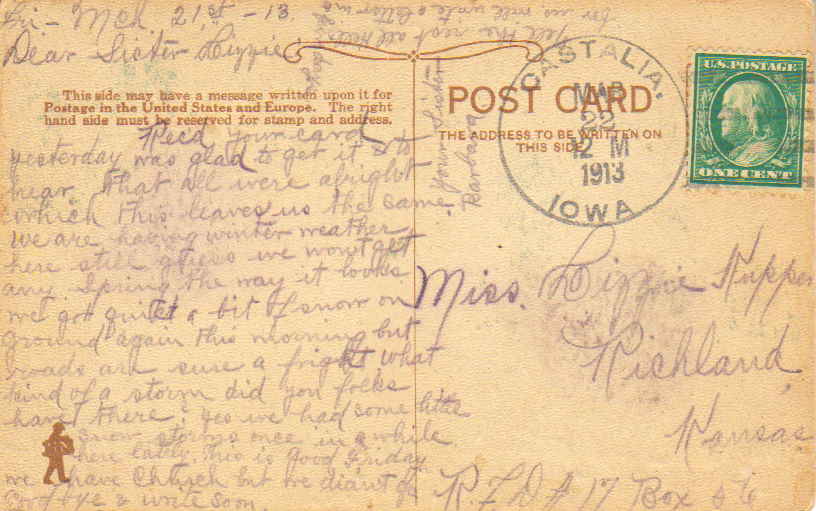 Fri - Mch. 21st - 13
Dear Sister Lizzie
This side may have a message written upon it for
Postage in the United States and Europe. The right
hand side must be reserved for stamp and address.
Recd your card
yesterday was glad to get it & to
hear that all were alright
which this leaves us the same
we are having winter weather
here still guess we wont get
any Spring the way it looks
we got quite a bit of snow on
ground again this morning but
roads are sure a fright, what
kind of a storm did you folks
have there? Yes we had some little
snow storms once in a while
here lately. This is Good Friday
we have Church but we didn't go
Good bye & write soon.
Tell the rest all Hello
for us will write a letter
Your Sister
Barbara
POST CARD
THE ADDRESS TO BE WRITTEN ON
THIS SIDE
CASTALIA,
MAR
22
12 M
1913
IOWA
U.S. POSTAGE
ONE CENT
Miss. Lizzie Kupper
Richland,
Kansas
R.F.D # 17 Box 56